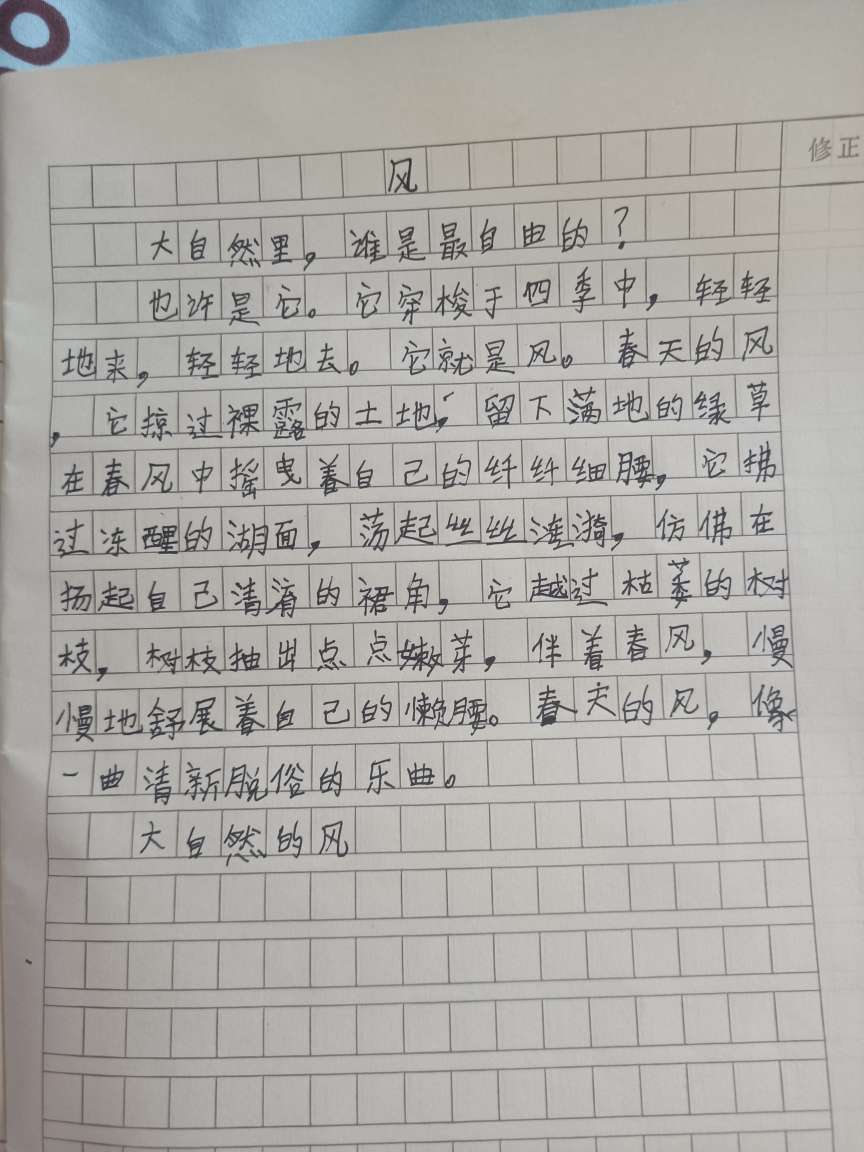 修正
风
大自然里，谁是最自由的？
也许是它。它穿梭于四季中，轻轻
地来，轻轻地去。它就是风。春天的风
，它掠过裸露的土地，留下满地的绿草
在春风中摇曳着自己的纤纤细腰，它拂
过冻醒的湖面，荡起丝丝涟漪，仿佛在
扬起自己清淯的裙角，它越过枯萎的树
枝，树枝抽出点点嫩芽，伴着春风，慢
慢地舒展着自己的懒腰。春天的风，像
一曲清新脱俗的乐曲。
大自然的风